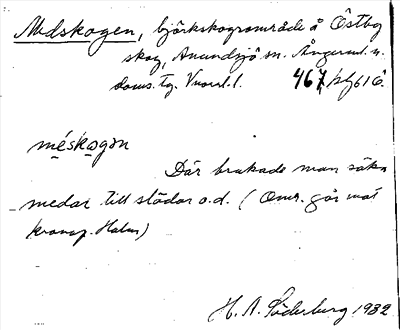 Medskogen, björkskogsområde å Östby
skog, Anundsjö sn. Ångerml. n.
doms. tg.
467
méskogən
Där brukade man söka
medar till slädar o.d. (Omr. går mot
kronop. Holm)
H. A. Söderberg 1932